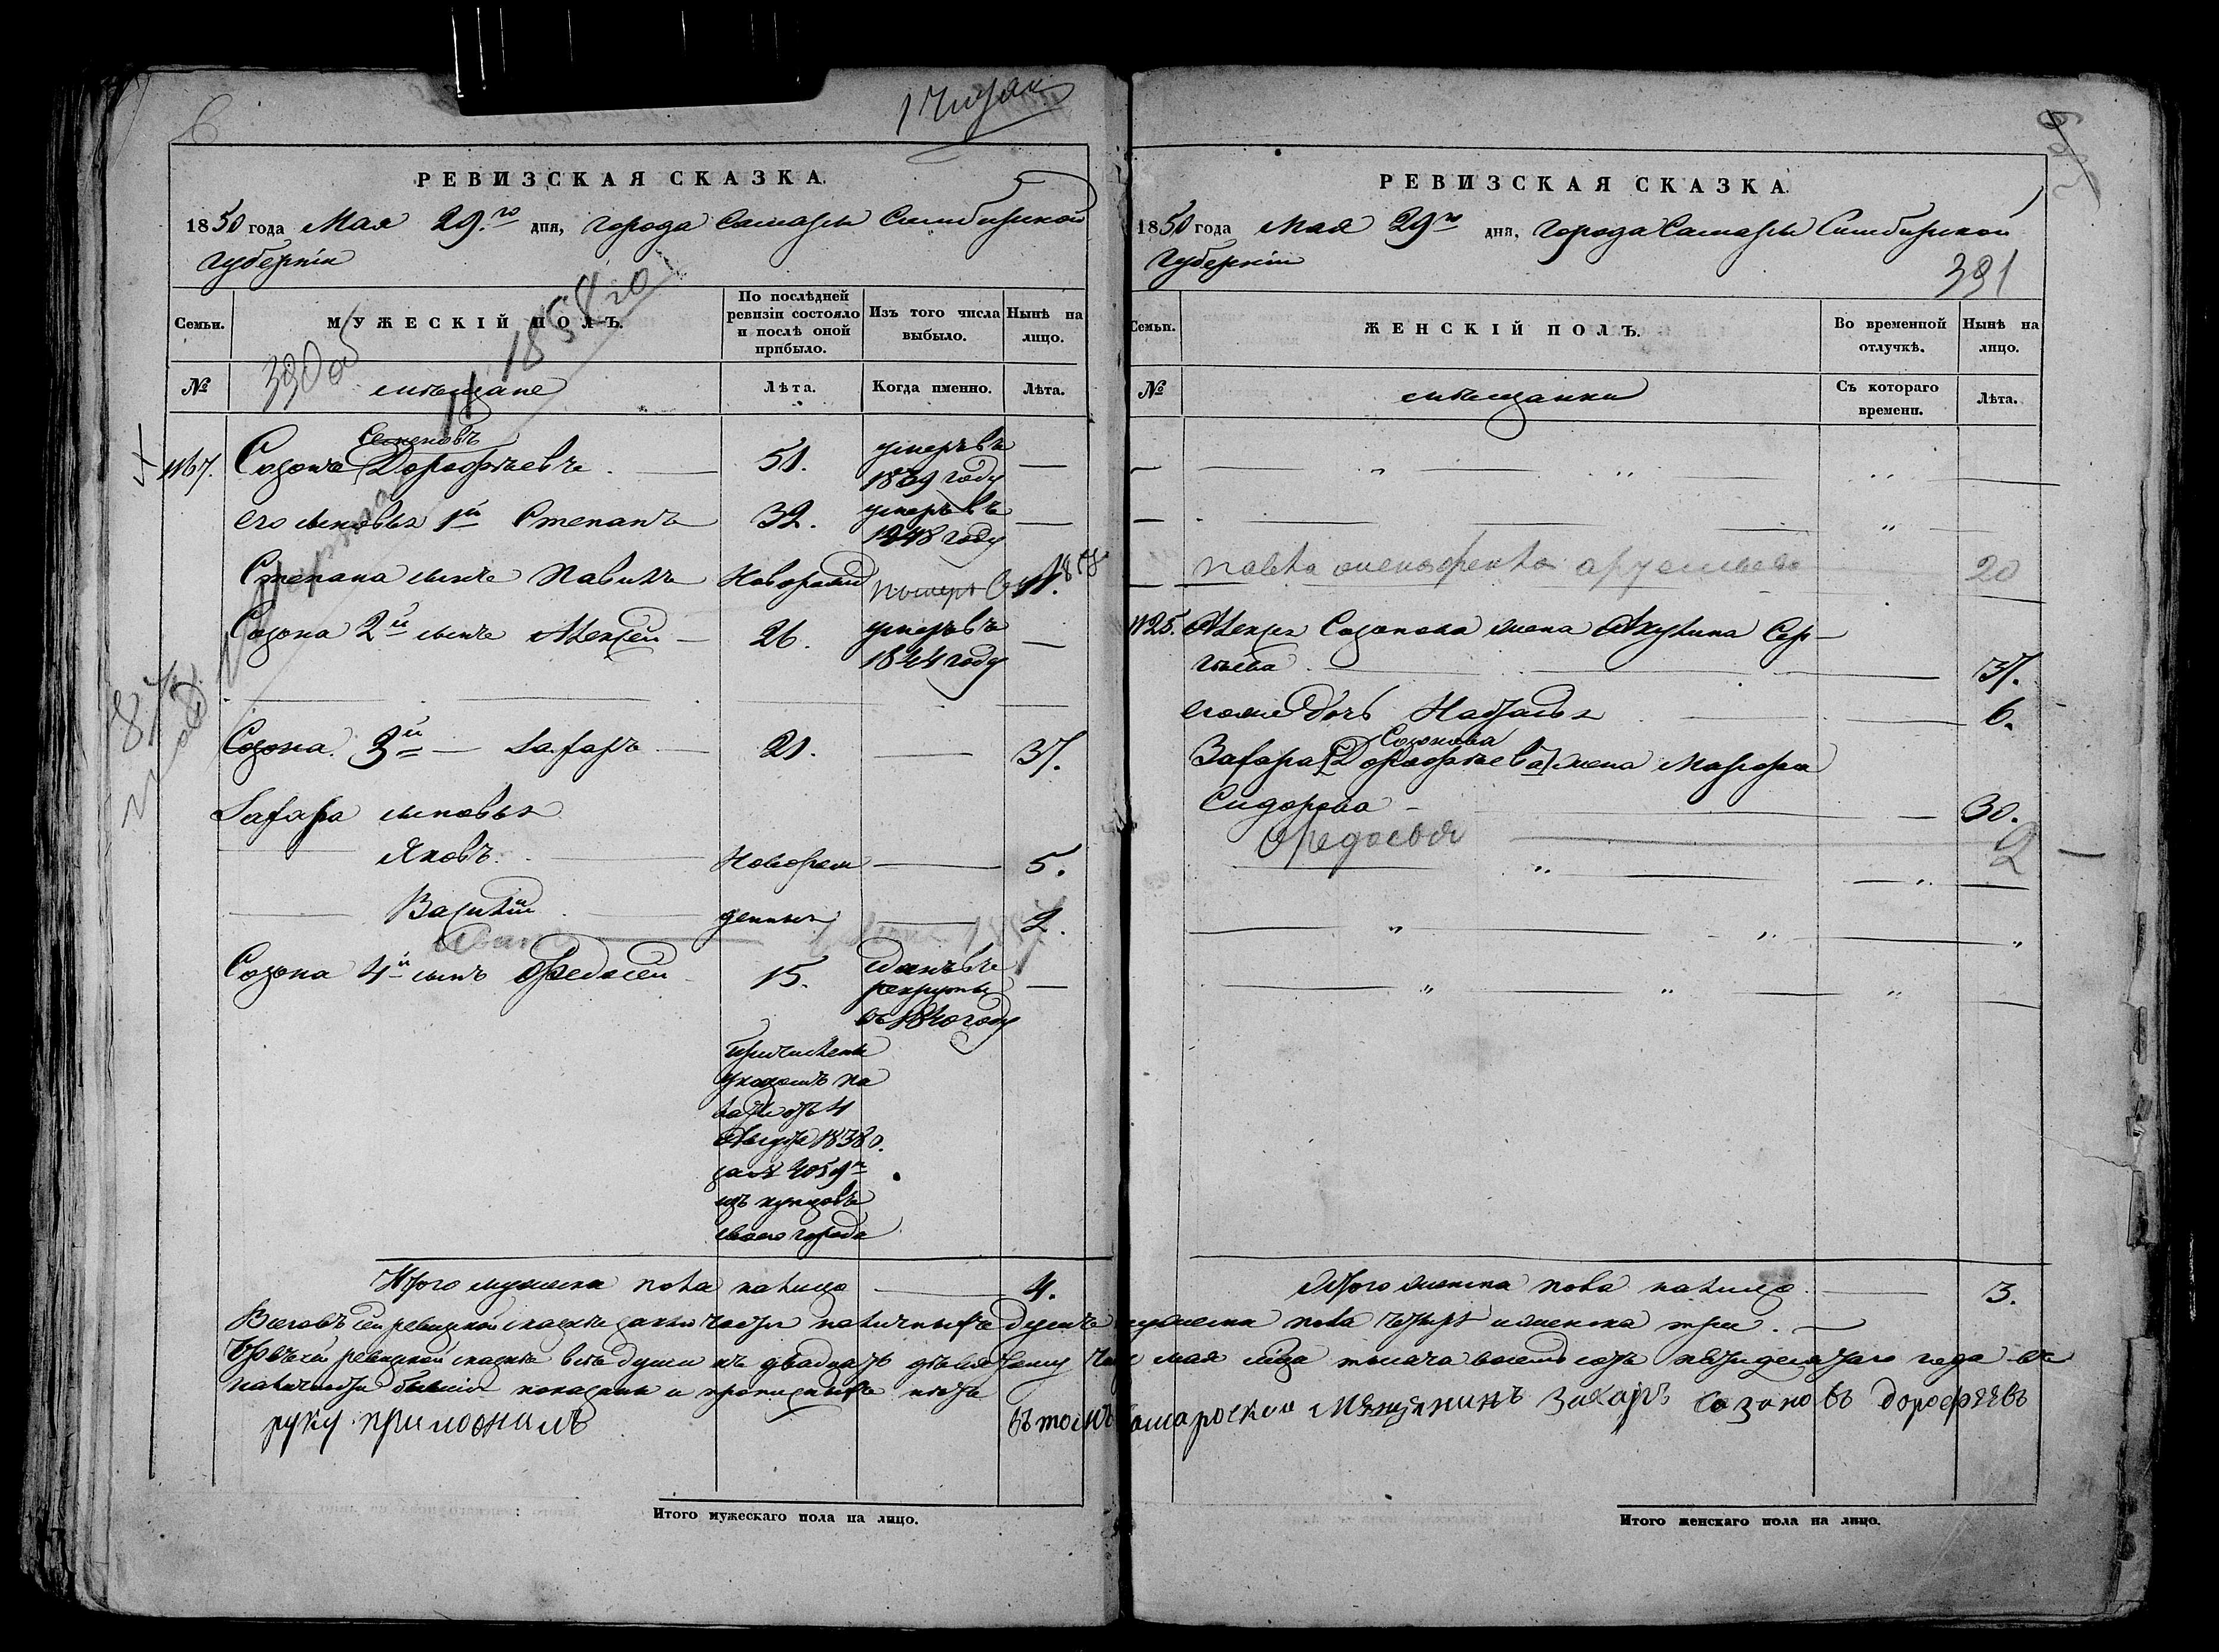 РЕВИЗСКАЯ СКАЗКА.
1850 года Мая 29го дня, города Самары Симбирской
губернiи
Семьи.
МУЖЕСКIЙ ПОЛЪ.
По послѣдней ревизiи состояло и послѣ оной прибыло.
Изъ того числа выбыло.
Нынѣ на лицо.
№
мѣщане
Лѣта.
Когда именно.
Лѣта.
1858го
Семеновъ
№67. Созонъ Дорофѣевъ 51. умеръ въ 1839 году
его сыновья 1й Степанъ 32. умеръ въ 1848 году
Степана сынъ Павилъ Новорожд 11.
Созона 2й сынъ Алексей 26. умеръ въ 1844 году
Созона 3й Захаръ 21. 37.
Захара сыновья
Яковъ Новорож 5.
Василiй денныя 2.
Иванъ
Созона 4й сынъ Федосей 15. сданъ въ рекруты въ 1840 году
Причислены
указомъ па
латы отъ 4
Августа 1838 г.
за № 4059м
изъ купцовъ
своего города
Итого мужеска пола налицо 4.
Итого мужескаго пола на лицо.
РЕВИЗСКАЯ СКАЗКА.
1850 года Мая 29го дня, города Самары Симбирской
Губернiи
391
Семьи.
ЖЕНСКIЙ ПОЛЪ.
Во временной отлучкѣ.
Нынѣ на лицо.
№
мѣщанки
Съ котораго времени.
Лѣта.
20
№25. Алексея Созонова жена Акулина Сер-
гѣева 37.
егоже дочь Наталья 6.
Созонова
Захара Дорофѣева жена Марфа
Сидорова 30.
Федосья 2
Итого женска пола налицо 3.
Всего въ сей ревизской сказкѣ заключается наличныхъ душъ мужеска пола четыре и женска три.
Что въ сей ревизской сказкѣ всѣ души къ двадцать девятому числу мая мца тысяча восемь сотъ пятидесятаго года въ
наличности бывшiя показаны и прописныхъ нѣтъ
въ томъ Самарской Мѣщянинъ Захаръ Созановъ Дорофѣевъ
руку приложилъ
Итого женскаго пола на лицо.